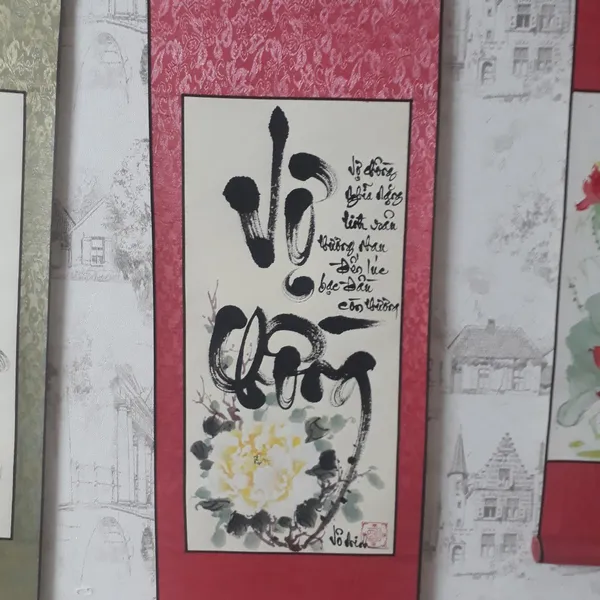 Vợ
Chồng
Vợ chồng
nghĩa nặng
tình sâu
thương nhau
đến lúc
bạc đầu
còn thương